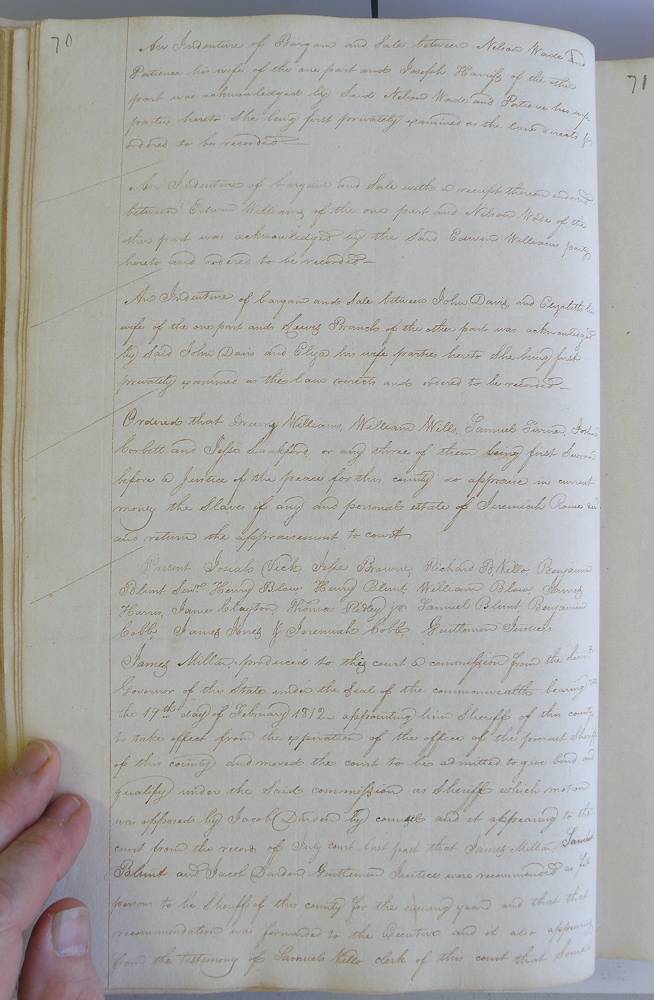 70
71
An Indenture of Bargain and Sale between Nelson Wade and
Patience his wife of the one part and Joseph Harris of the other
part was acknowledged by Said Nelson Wade and Patience his wife
parties hereto She being first privately examined as the law directs &
ordered to be recorded —
An Indenture of bargain and Sale with a receipt thereon endorsed
between Edwin Williams of the one part and Nelson Wade of the
other part was acknowledged by the Said Edwin Williams party
hereto and ordered to be recorded —
An Indenture of bargain and Sale between John Davis and Elizabeth his
wife of the one part and Lewis Branch of the other part was acknowledged
by Said John Davis and Eliza his wife parties hereto She being first
privately examined as the law directs and ordered to be recorded —
Ordered that Drewry Williams, William Will, Samuel Turner,
Corbett and Jesse Lankford or any three of them being first Sworn
before a Justice of the peace for this county do appraise in current
money the Slaves if any and personal estate of Jeremiah
and return the appraisement to court
Present Josiah Vick Jesse Browne, Richard B Kello, Benjamin
Blunt Senr. Henry Blow, Henry Blunt, William Blow, James
Harris, James Clayton, Thomas Ridley jr. Samuel Blunt, Benjamin
Cobb, James Jones & Jeremiah Cobb Gentlemen Justices
James Millar produced to this court a commission from the Lieut.
Governor of this State under the Seal of the commonwealth bearing
the 19th day of February 1812 appointing him Sheriff of this county
to take effect from the expiration of the office of the present Sheriff
of this county and moved the court to be admitted to give bond and
qualify under the Said commission as Sheriff which motion
was opposed by Jacob Darden by counsel and it appearing to the
court from the record of July court last past that James Millar, Samuel
Blunt and Jacob Darden Gentlemen Justices were recommended as fit
persons to be Sheriff of this county for the ensuing year and that that
recommendation was forwarded to the Executive and it also appearing
from the testimony of Samuel Kello clerk of this court that Some